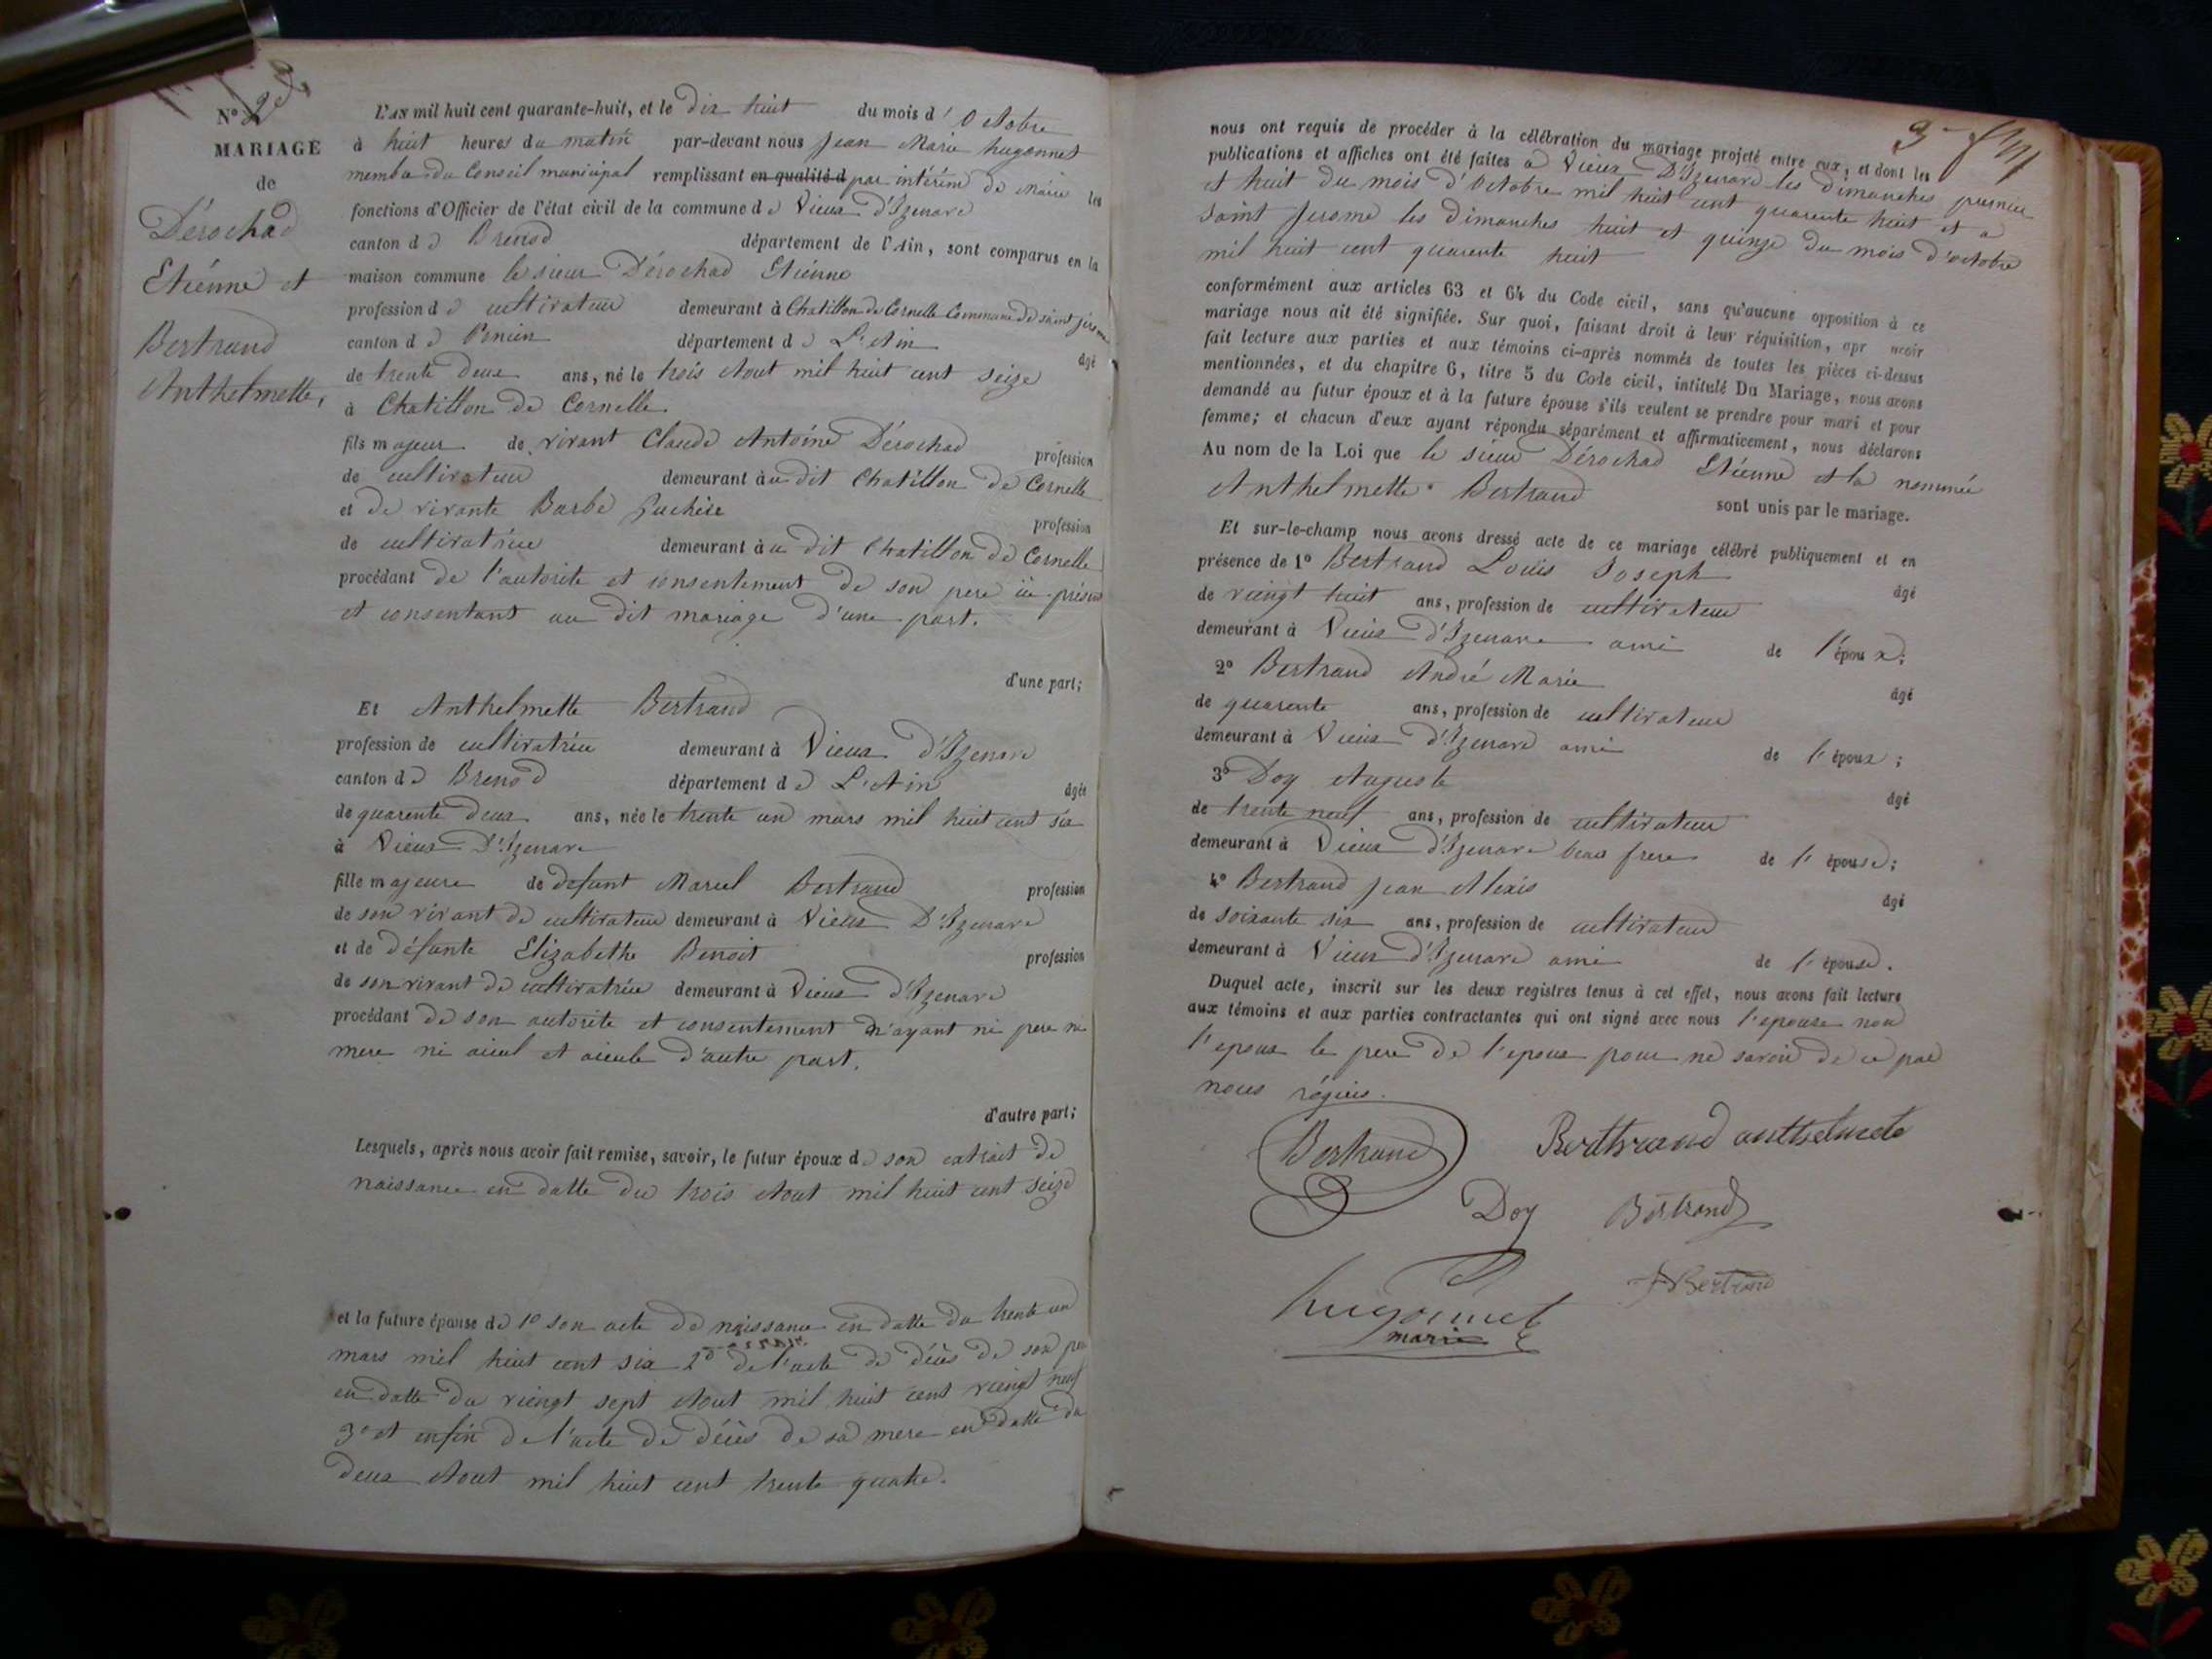 N° 2
MARIAGE
de
Dérochad
Etiénne et
Bertrand
Anthelmette,
L'AN mil huit cent quarante-huit, et le dix huit du mois d' Octobre
à huit heures du matin par-devant nous Jean Marie hugonnet
membre du Conseil municipal remplissant en qualité d par intérim de Maire les
fonctions d'Officier de l'état civil de la commune de Vieux d'Izenave
canton de Brenod département de l'Ain, sont comparus en la
maison commune le sieur Dérochad Etiénne
profession de cultivateur demeurant à Chatillon de Cornelle Commune de saint jérome
canton de Poncin département de L'Ain âgé
de trente deux ans, né le trois Aout mil huit cent seize
à Chatillon de Cornelle
fils majeur de vivant Claude Antoine Dérochad profession
de cultivateur demeurant à u dit Chatillon de Cornelle
et de vivante Barbe profession
de cultivatrice demeurant à u dit Chatillon de Cornelle
procédant de l'autorite et consentement de son pere ici présent
et consentant au dit mariage d'une part.
d'une part;
Et Anthelmette Bertrand
profession de cultivatrice demeurant à Vieux d'Izenave
canton de Brenod département de L'Ain âgée
de quarente deux ans, née le trente un mars mil huit cent six
à Vieux D'Izenave
fille majeure de defunt Marcel Bertrand profession
de son vivant de cultivateur demeurant à Vieux D'Izenave
et de défunte Elizabethe Benoit profession
de son vivant de cultivatrice demeurant à Vieux d'Izenave
procédant de son autorite et consentement n'ayant ni pere ni
mere ni aieul et aieule d'autre part.
d'autre part;
Lesquels, après nous avoir fait remise, savoir, le futur époux de son extrait de
naissance en datte du trois Aout mil huit cent seize
et la future épouse de 1° son acte de naissance en datte du trente un
mars mil huit cent six 2° de l'acte de décès de son pere
en datte du viengt sept Aout mil huit cent viengt neuf
3° et enfin de l'acte de décès de sa mere en datte du
deux Aout mil huit cent trente quatre.
nous ont requis de procéder à la célébration du mariage projeté entre eux, et dont les
publications et affiches ont été faites à Vieux D'Izenave les dimanches premier
et huit du mois d'Octobre mil huit cent quarente huit et a
saint Jerome les dimanches huit et quinze du mois d'octobre
mil huit cent quarente huit
conformément aux articles 63 et 64 du Code civil, sans qu'aucune opposition à ce
mariage nous ait été signifiée. Sur quoi, faisant droit à leur réquisition, apr avoir
fait lecture aux parties et aux témoins ci-après nommés de toutes les pièces ci-dessus
mentionnées, et du chapitre 6, titre 5 du Code civil, intitulé Du Mariage, nous avons
demandé au futur époux et à la future épouse s'ils veulent se prendre pour mari et pour
femme; et chacun d'eux ayant répondu séparément et affirmativement, nous déclarons
Au nom de la Loi que le sieur Dérochad Etiénne et la nommée
Anthelmette Bertrand sont unis par le mariage.
Et sur-le-champ nous avons dressé acte de ce mariage célébré publiquement et en
présence de 1° Bertrand Louis Joseph âgé
de viengt huit ans, profession de cultivateur
demeurant à Vieux d'Izenave ami de l'époux;
2° Bertrand André Marie âgé
de quarente ans, profession de cultivateur
demeurant à Vieux d'Izenave ami de l'époux;
3° Doy Auguste âgé
de trente neuf ans, profession de cultivateur
demeurant à Vieux d'Izenave beau frere de l'épouse;
4° Bertrand Jean Alexis âgé
de soixante six ans, profession de cultivateur
demeurant à Vieux d'Izenave ami de l'épouse.
Duquel acte, inscrit sur les deux registres tenus à cet effet, nous avons fait lecture
aux témoins et aux parties contractantes qui ont signé avec nous l'epouse non
l'epoux le pere de l'epoux pour ne savoir de ce par
nous réquis.
Bertrand Berthrand anthelmete
Doy Bertrand
Bertrand
hugonnet
marie